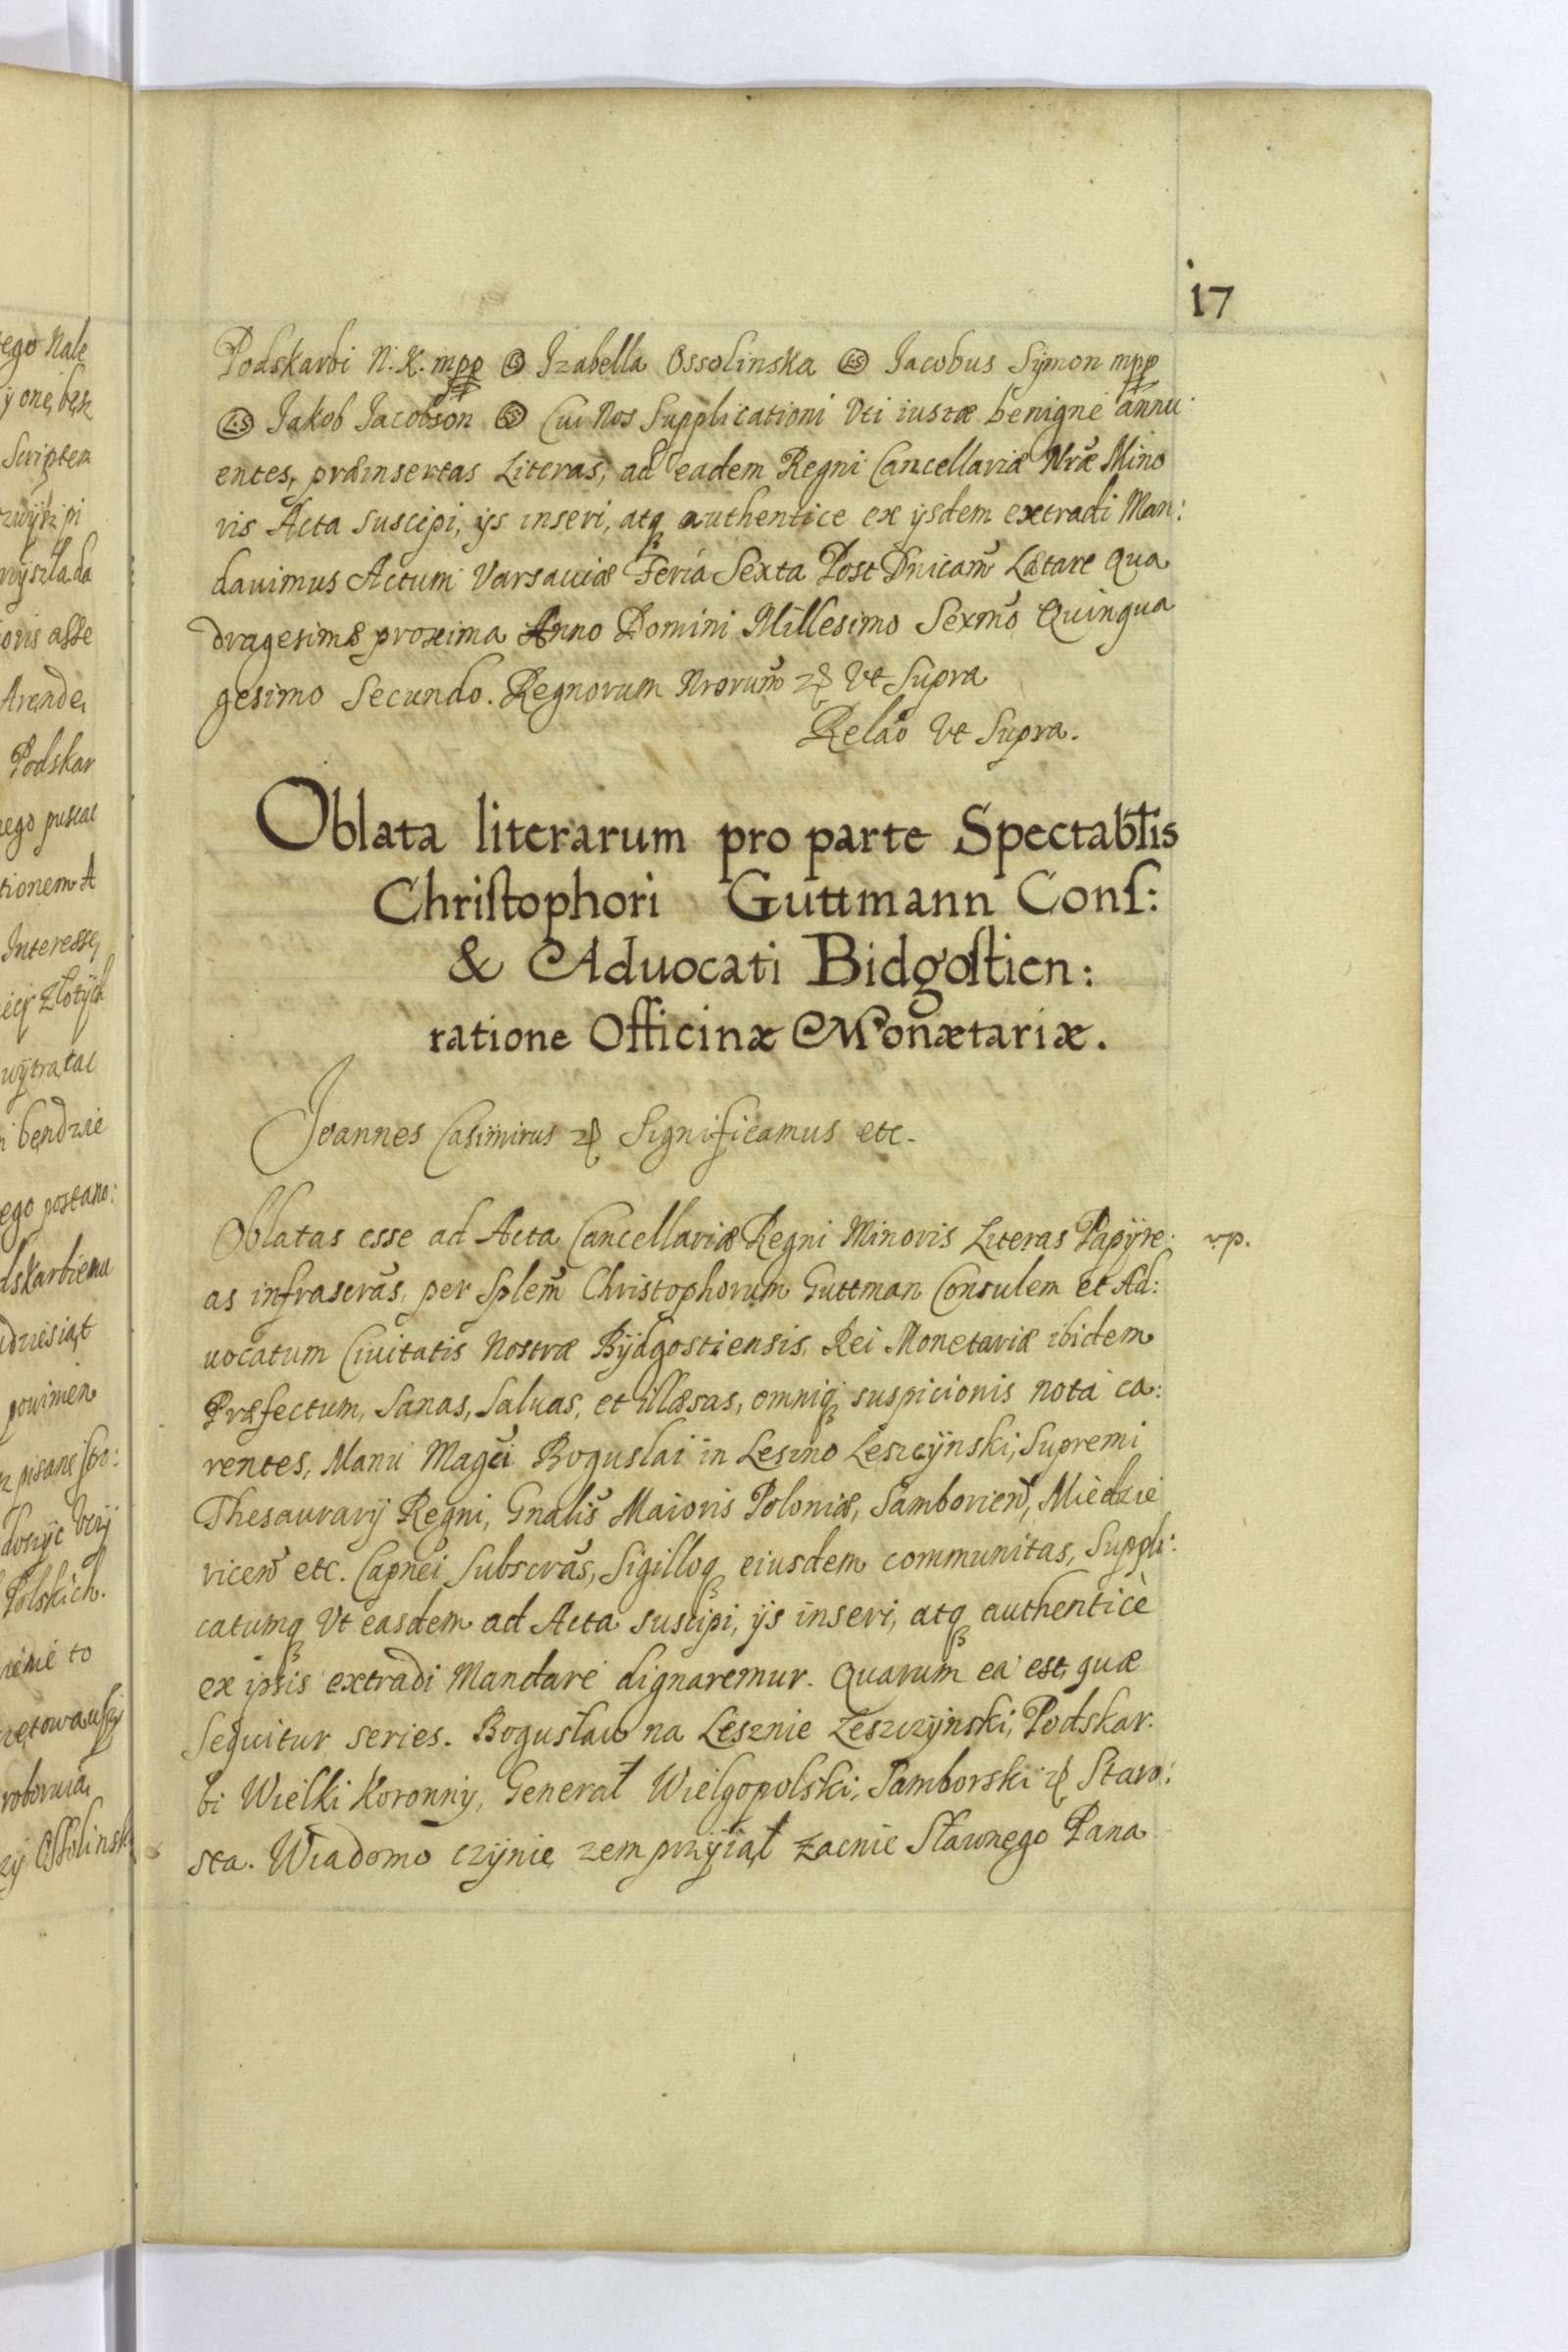 17
Podskarbi N. K. mpp (LS) Izabella Ossolinska (LS) Jacobus Symon mpp
(LS) Jakob Jacobson (LS) Cui Nos Supplicationi Vti iustæ benigne annu
entes, præinsertas Literas, ad eadem Regni Cancellariæ Nræ Mino
ris Acta suscipi, ijs inseri, atq authentice ex ijsdem extradi Man:
dauimus Actum Varsauiæ Feria Sexta Post Dnicam Lætare Qua
dragesimæ proxima Anno Domini Millesimo Sexmo Quinqua
gesimo Secundo. Regnorum Nrorum &c Vt Supra
Relao Vt Supra.
Oblata literarum pro parte Spectablis
Chriſtophori Guttmann Conſ:
& Aduocati Bidgoſtien:
ratione Officinæ Monætariæ.
Joannes Casimirus &c Significamus etc.
Oblatas esse ad Acta Cancellariæ Regni Minoris Literas Papÿre: rp.
as infrascras, per Splem Christophorum Guttman Consulem et Ad:
uocatum Ciuitatis Nostræ Bÿdgostiensis, Rei Monetariæ ibidem
Præfectum, Sanas, Saluas, et illæsas, omniq suspicionis nota ca:
rentes, Manu Magci Boguslai in Leszno Leszcÿnski, Supremi
Thesaurarij Regni, Gnalis Maioris Poloniæ, Samborien, Miedzie
ricen etc. Capnei Subscras, Sigilloq eiusdem communitas, Suppli:
catumq Vt easdem ad Acta suscipi, ijs inseri, atq authenticè
ex ipsis extradi Mandare dignaremur. Quarum ea est quæ
Sequitur series. Bogusław na Lesznie Leszczÿnski, Podskar:
bi Wielki Koronny, Generał Wielgopolski, Samborski &c Staro:
sta. Wiadomo czÿnię zem przÿiął zacnie Sławnego Pana